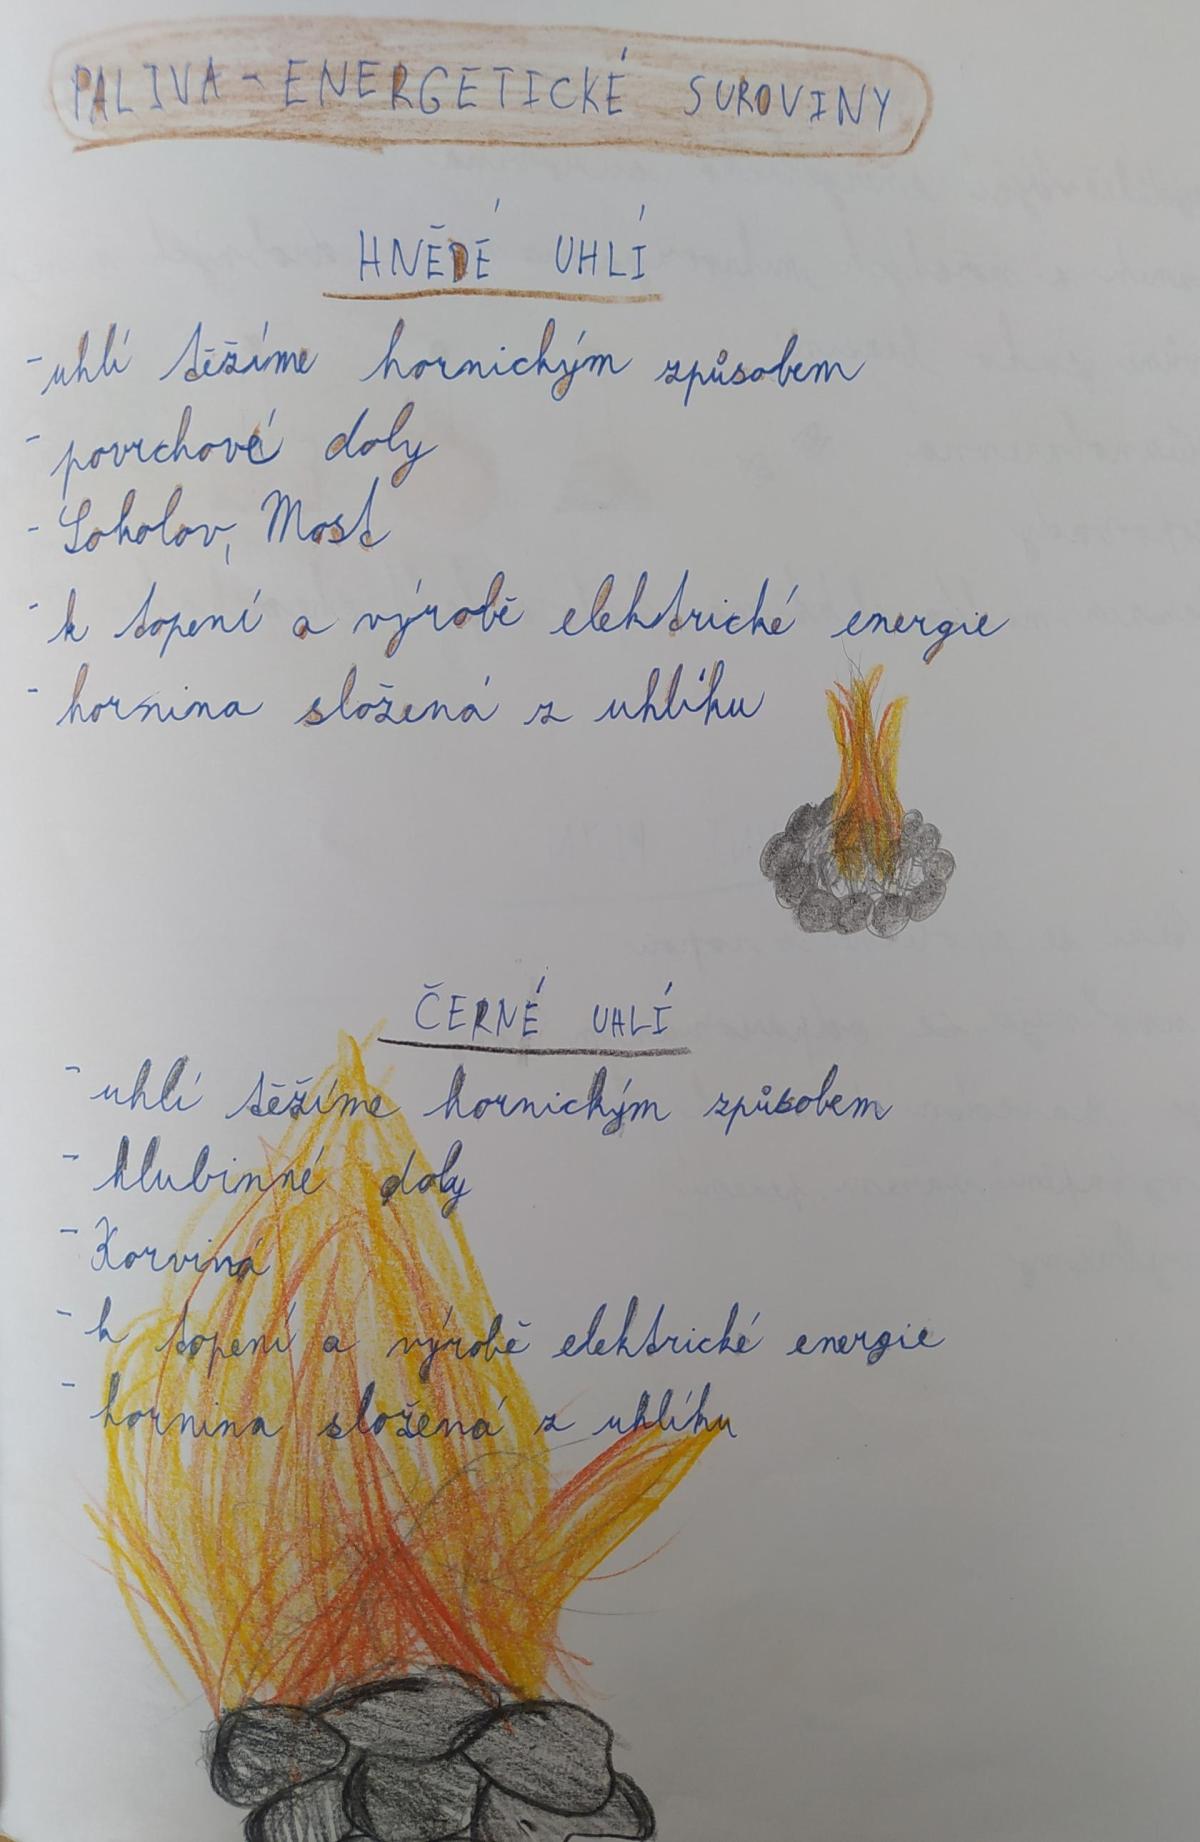 PALIVA - ENERGETICKÉ SUROVINY
HNĚDÉ UHLÍ
- uhlí těžíme hornickým způsobem
- povrchové doly
- Sokolov, Most
- k topení a výrobě elektrické energie
- hornina složená z uhlíku
ČERNÉ UHLÍ
- uhlí těžíme hornickým způsobem
- hlubinné doly
- Karviná
- k topení a výrobě elektrické energie
- hornina složená z uhlíku